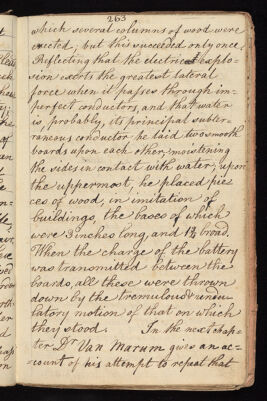 263
which several columns of wood were
erected; but this succeeded only once.
Reflecting that the electrical explo-
sion exerts the greatest lateral
force when it passes through im-
perfect conductors, and that water
is, probably, its principal subter-
raneous conductor he laid two smooth
boards upon each other, moistening
the sides in contact with water; upon
the uppermost, he placed pie-
ces of wood, in imitation of
buildings, the bases of which
were 3 inches long, and 1½ broad.
When the charge of the battery
was transmitted between the
boards, all these were thrown
down by the tremulous & undu-
latory motion of that on which
they stood. In the next chap-
ter Dr Van Marum gives an ac-
count of his attempt to repeat that